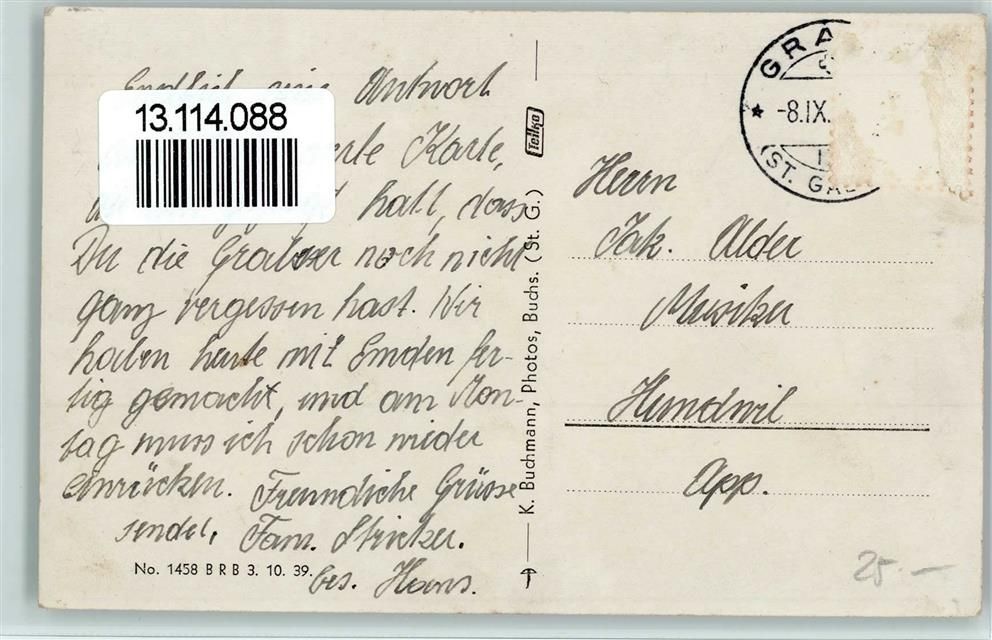 13.114.088
Antwort
Karte,
hatt, dass
Du die Grabser noch nicht
ganz vergessen hast. Wir
haben heute mit Emden fer-
tig gemacht, und am Mon-
tag muss ich schon wieder
einrücken. Freundliche Grüsse
sendet, Fam. Stricker.
bes. Hans.
No. 1458 B R B 3. 10. 39.
K. Buchmann, Photos, Buchs. (St. G.)
Tellko
GRA
-8.IX.
(ST. GAL
Herrn
Jak. Alder
Musiker
Hundwil
App.
25.—